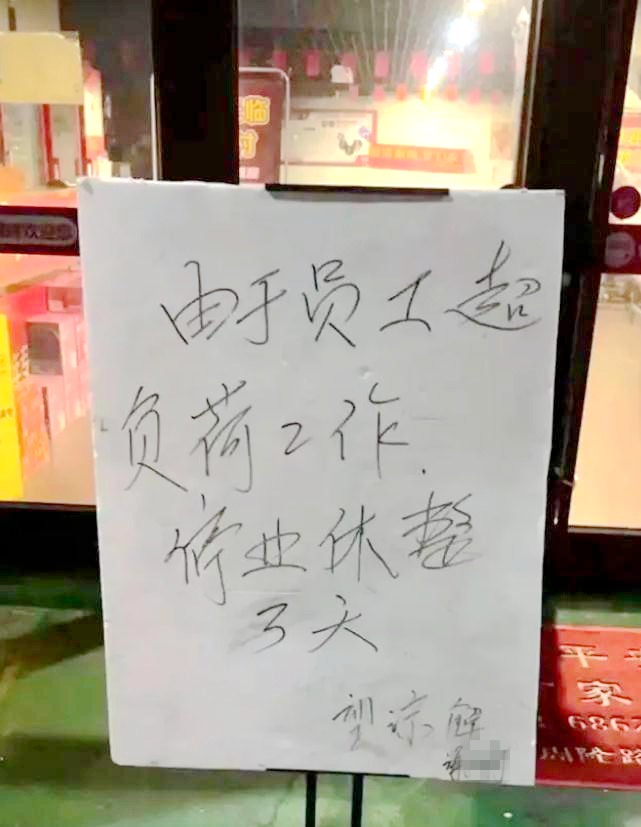 由于员工超
负荷工作.
停业休整
3天
望谅解
欢迎您
平
家
686